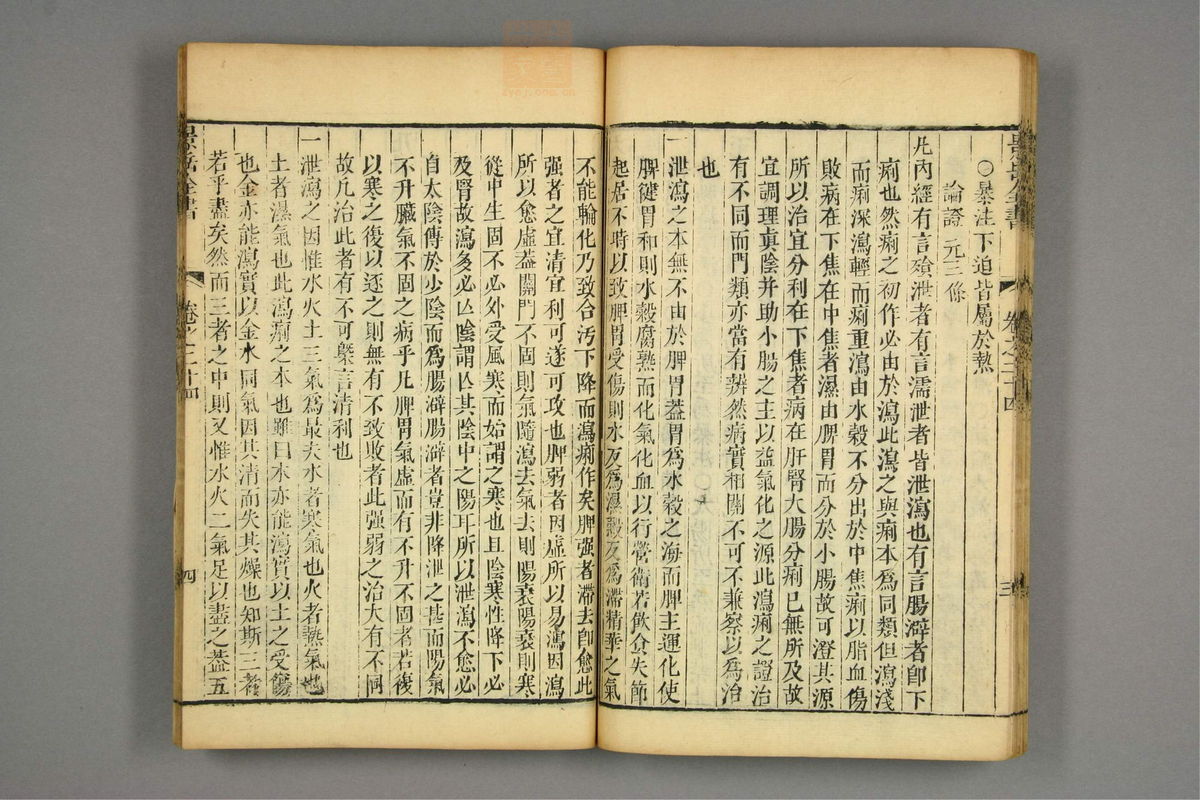 景岳全書 卷之二十四 三
○暴注下迫皆屬於熱
論證 元三條
凡內經有言飧泄者有言濡泄者皆泄瀉也有言腸澼者卽下
痢也然痢之初作必由於瀉此瀉之與痢本爲同類但瀉淺
而痢深瀉輕而痢重瀉由水穀不分出於中焦痢以脂血傷
敗病在下焦在中焦者濕由脾胃而分於小腸故可澄其源
所以治宜分利在下焦者病在肝腎大腸分痢已無所及故
宜調理眞陰并助小腸之主以益氣化之源此瀉痢之證治
有不同而門類亦當有辨然病實相關不可不兼察以爲治
也
一泄瀉之本無不由於脾胃葢胃爲水穀之海而脾主運化使
脾徤胃和則水穀腐熟而化氣化血以行營衛若飲食失節
起居不時以致脾胃受傷則水反爲濕穀反爲滯精華之氣
不能輸化乃致合汚下降而瀉痢作矣脾强者滯去卽愈此
强者之宜清宜利可遂可攻也脾弱者因虛所以易瀉因瀉
所以愈虛葢關門不固則氣隨瀉去氣去則陽衰陽衰則寒
從中生固不必外受風寒而始謂之寒也且陰寒性降下必
及腎故瀉多必亾陰謂亾其陰中之陽耳所以泄瀉不愈必
自太陰傳於少陰而爲腸澼腸澼者豈非降泄之甚而陽氣
不升臟氣不固之病乎凡脾胃氣虛而有不升不固者若復
以寒之復以逐之則無有不致敗者此强弱之治大有不同
故凡治此者有不可槩言清利也
一泄瀉之因惟水火土三氣爲最夫水者寒氣也火者熱氣也
土者濕氣也此瀉痢之本也雖曰木亦能瀉實以土之受傷
也金亦能瀉實以金水同氣因其清而失其燥也知斯三者
若乎盡矣然而三者之中則又惟水火二氣足以盡之葢五
景岳全書 卷之二十四 四